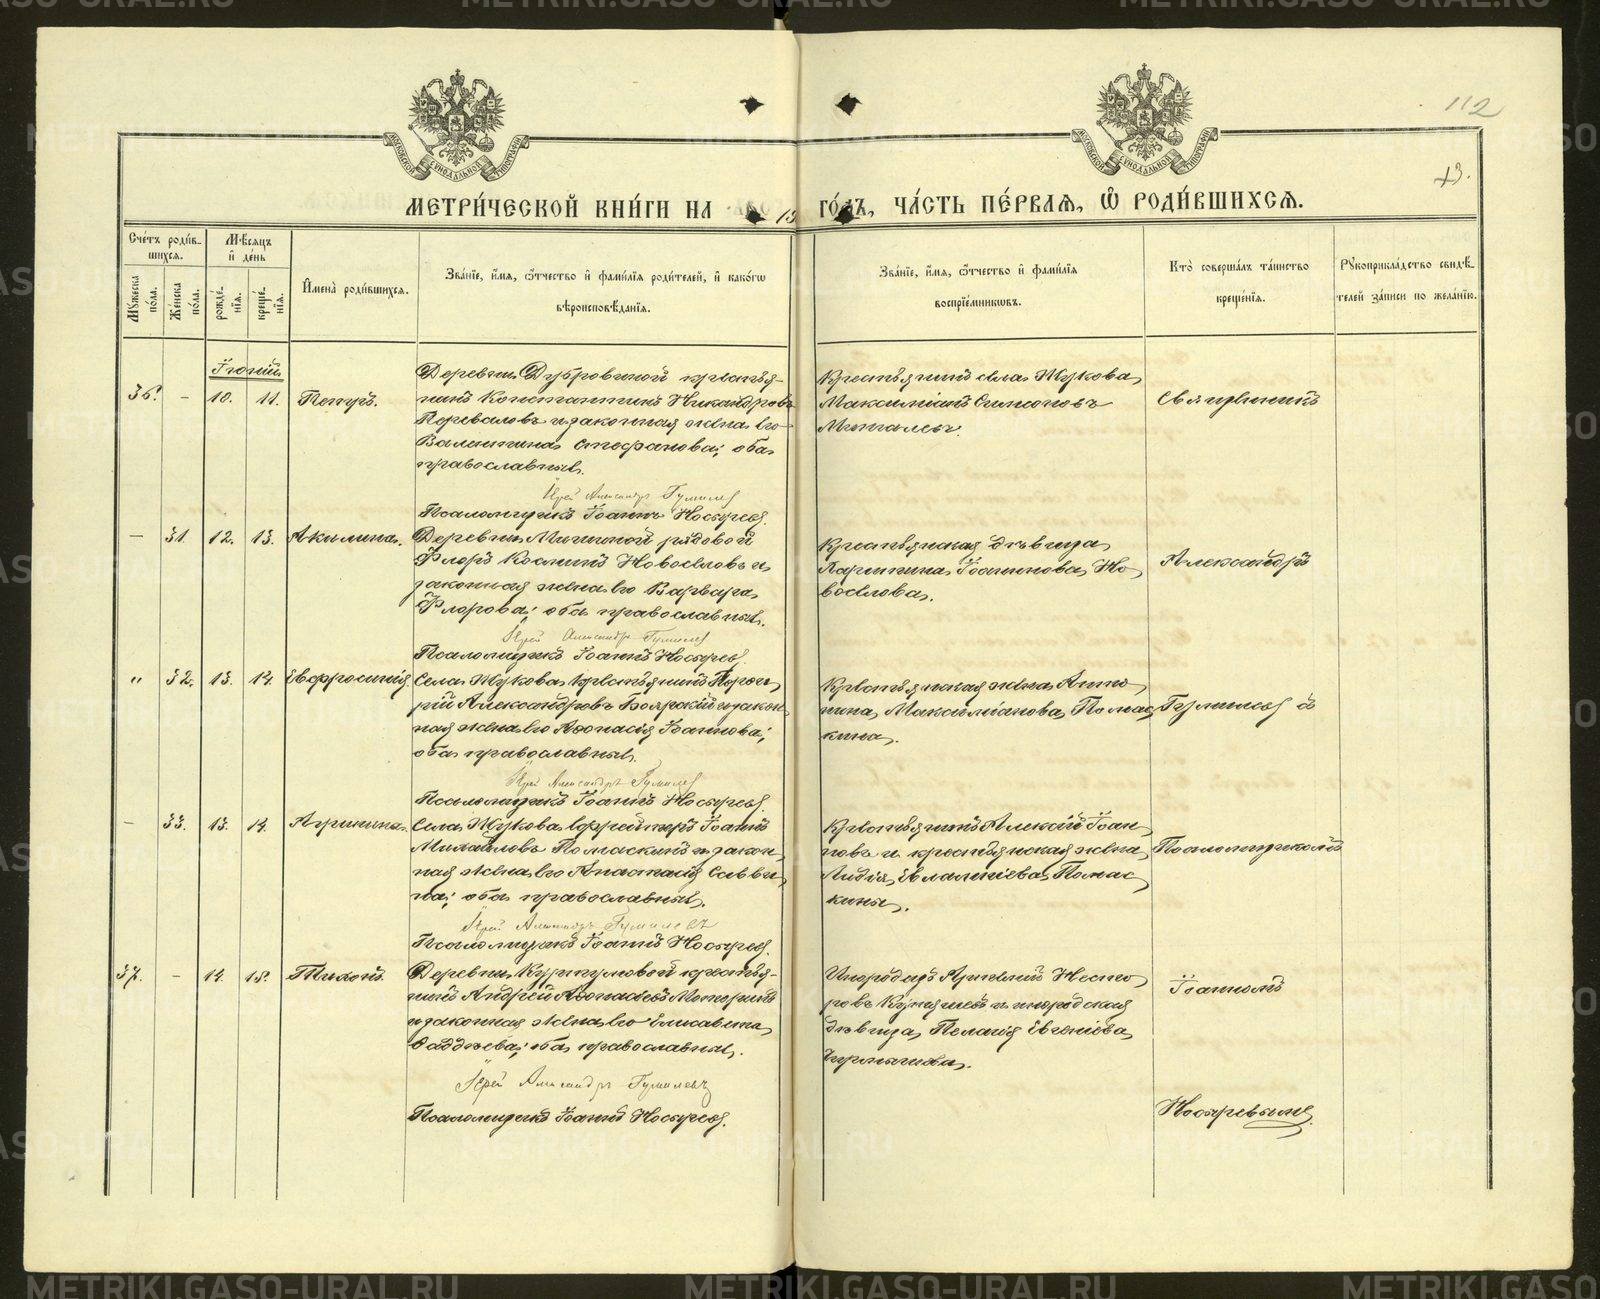 112
13.
МЕТРИ́ЧЕСКОЙ КНИ́ГИ НА
ГО́ДЪ, ЧА́СТЬ ПЕ́РВАѦ, Ѽ РОДИ́ВШИХСѦ.
Сче́тъ роди́в-
шихсѧ.
Мѣ́сѧцъ
и҆ де́нь
Мꙋ́жеска по́ла.
Же́нска по́ла.
рожде́нїѧ.
креще́нїѧ.
И҆мена̀ роди́вшихсѧ.
Зва́нїе, и҆́мѧ, ѻ҆́тчество и҆ фами́лїѧ роди́телей, и҆ како́гѡ
вѣроисповѣ́данїѧ.
Зва́нїе, и҆́мѧ, ѻ҆́тчество и҆ фами́лїѧ
воспрїе́мникѡвъ.
Кто̀ соверша́лъ та́инство
креще́нїѧ.
Рꙋкоприкла́дство свидѣ́-
телей за́писи по жела́нїю.
Іюній.
36. - 10. 11. Петръ.
Деревни Дубровиной крестья-
нинъ Константинъ Никандровъ
Переваловъ и законная жена его
Валентина Стефанова; оба
православные.
Іерей Александръ Гумилевъ
Псаломщикъ Іоаннъ Носыревъ.
Крестьянинъ села Жукова
Максиміанъ Симоновъ
Священникъ
- 31. 12. 13. Акилина.
Деревни рядовой
Флоръ Косминъ Новоселовъ и
законная жена его Варвара
Флорова; оба православные.
Іерей Александръ Гумилевъ
Псаломщикъ Іоаннъ Носыревъ.
Крестьянская дѣвица
Іоаннова Но-
воселова.
Александръ
" 32. 13. 14. Евфросинія.
Села Жукова крестьянинъ Порфи-
рій Александровъ Боярскій и закон-
ная жена его Аѳанасія Іоаннова;
оба православные.
Іерей Александръ Гумилевъ
Псаломщикъ Іоаннъ Носыревъ.
Крестьянская жена Анто-
нина Максиміанова Помас-
кина.
Гумилевъ съ
- 33. 13. 14. Агриппина.
Села Жукова ефрейторъ Іоаннъ
Михайловъ Помаскинъ и закон-
ная жена его Анастасія Савви-
на; оба православные.
Іерей Александръ Гумилевъ
Псаломщикъ Іоаннъ Носыревъ.
Крестьянинъ Алексій Іоан-
новъ и крестьянская жена
Лидія Евлампіева Помас-
кины.
Псаломщикомъ
37. - 14. 15. Тихонъ.
Деревни крестья-
нинъ Андрей Аѳанасьевъ
и законная жена его Елисавета
Ѳаддеева; оба православные.
Іерей Александръ Гумилевъ
Псаломщикъ Іоаннъ Носыревъ.
Инородецъ Несто-
ровъ и инородская
дѣвица Пелагія Евгеніева
Іоанномъ
Носыревымъ
METRIKI.GASO-URAL.RU